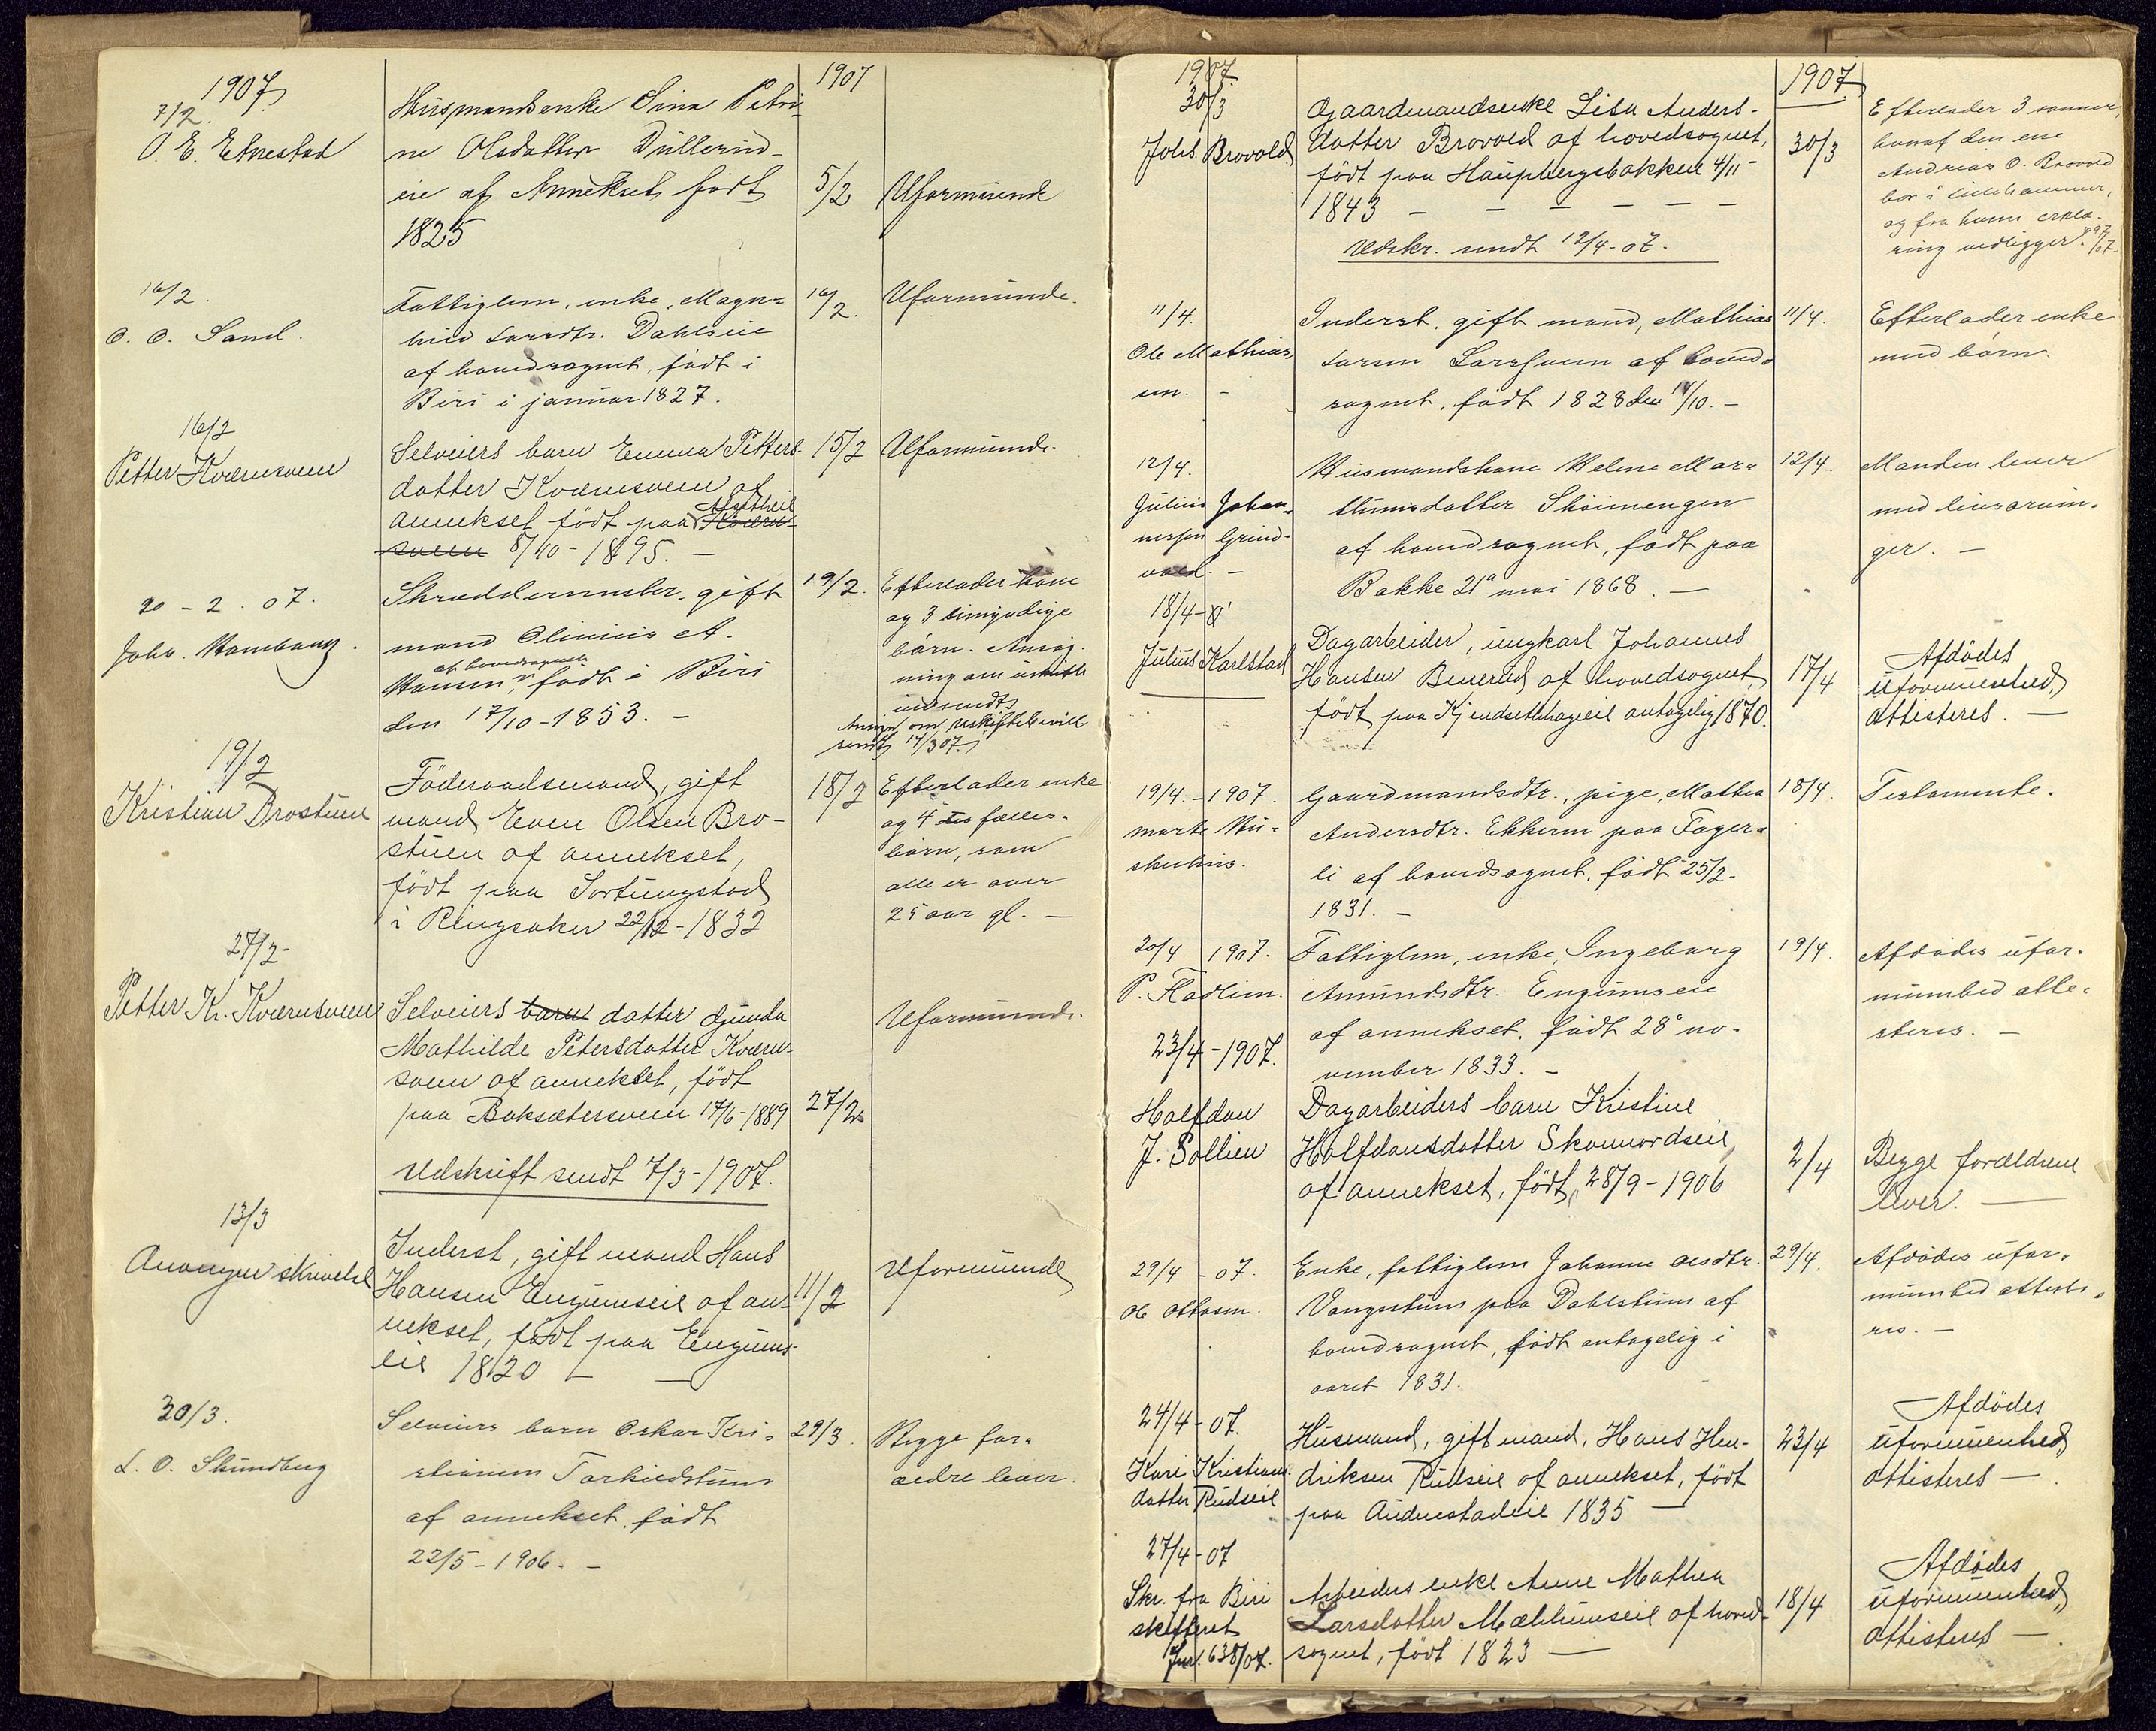 1907
7/2.
O. E. Etnestad
Husmandsenke Sina Petri-
ne Olsdatter Dullerud-
eie af Annekset født
1825
1907
5/2
Uformuende
16/2.
O. O. Sand.
Fattiglem, enke, Magn=
hild Larsdtr. Dahlseie
af hovedsognet, født i
Biri i januar 1827.
16/2.
Uformuende.
16/2
Petter Kværnsveen
Selveiers barn Emma Petters-
datter Kværnsveen af
annekset født paa Kværn-
sveen 8/10 - 1895. -
15/2
Uformuende.
20 - 2. 07.
Johs.
Skræddermester, gift
mand Olinius A.
af hovedsognet
Hansen, født i Biri
den 17/10 - 1853. -
19/2.
Efterlader kone
og 3 umyndige
børn. Ansøg-
ning om uskifte
indsendt.
Ansøgn om uskiftebevill
sendt 14/3 07.
19/2
Kristian Brostuen
Føderaadsmand, gift
mand Even Olsen Bro-
stuen af annekset,
født paa Sortungstad
i Ringsaker 22/12 - 1832
18/2
Efterlader enke
og 4 fælles-
børn, som
alle er over
25 aar gl. -
27/2 -
Petter Kr. Kværnsveen
Selveiers barn datter Gunda
Mathilde Petersdatter Kværn-
sveen af annekset, født
paa Baksætersveen 17/6 - 1889
Udskrift sendt 7/3 - 1907.
27/2
Uformuende.
13/3
Anonym skrivelse
Inderst, gift mand Hans
Hansen Engumseie af an-
nekset, født paa Engums-
eie 1820 -
11/2
Uformuende
30/3.
L. O. Skundberg
Selveiers barn Oskar Kri-
stiansen Torkildstuen
af annekset, født
22/5 - 1906. -
29/3.
Begge for-
ældre lever.
1907
30/3
Johs. Brovold
Gaardmandsenke Lisa Anders-
datter Brovold af hovedsognet,
født paa Haupbergsbakken 4/11 -
1843 - - - - - -
Udskr. sendt 12/4 - 07.
1907
30/3
Efterlader 3 sønner,
hvoraf den ene
Andreas O. Brovold
bor i Lillehammer,
og fra ham erklæ-
ring vedligger.
11/4.
Ole Mathias-
sen. -
Inderst, gift mand, Mathias
Larsen Larshuen af hoved-
sognet, født 1828 den 14/10. -
11/4.
Efterlader enke
med børn.
12/4.
Julius Johan-
nessen Grind-
vold. -
Husmandskone Helene Mar-
thinusdatter Skoimengen
af hovedsognet, født paa
Bakke 21de mai 1868. -
12/4.
Manden lever
med livsarvin-
ger. -
18/4 -
Julius Karlstad
Dagarbeider, ungkarl Johannes
Hansen Benerud af hovedsognet,
født paa Kjendsethageeie antagelig 1870.
17/4
Afdødes
uformuenhed
attisteres. -
19/4. - 1907.
Marte Hu-
skelhus.
Gaardmandsdtr., pige, Mathea
Andersdtr. Ekkern paa Fager-
li af hovedsognet, født 25/2 -
1831. -
18/4.
Testamente.
20/4 1907.
P. Fladlim.
Fattiglem, enke, Ingeborg
Amundsdtr. Engumseie
af annekset, født 28de no-
vember 1833. -
19/4.
Afdødes ufor-
muenhed atte-
steres. -
23/4 - 1907.
Halfdan
J. Sollien
Dagarbeiders barn Kristine
Halfdansdatter Skonnordseie,
af annekset, født, 28/9 - 1906
2/4
Begge forældrene
lever. -
29/4 - 07.
Ole Ottosen.
Enke, fattiglem Johanne Olsdtr.
Vangstuen paa Dahlstuen af
hovedsognet, født antagelig i
aaret 1831.
29/4.
Afdødes ufor-
muenhed atteste-
res. -
24/4 - 07.
Kari Kristians-
datter Rudseie
Husmand, gift mand, Hans Hen-
driksen Rudseie af annekset, født
paa Audenstadeie 1835 -
23/4
Afdødes
uformuenhed
attisteres -
27/4 - 07
Skr. fra Biri
skifteret
Jnr. 638/07.
Arbeiders enke Anne Mathea
Larsdatter Mæhlumseie af hoved-
sognet, født 1823 -
18/4
Afdødes
uformuenhed
attisteres -.